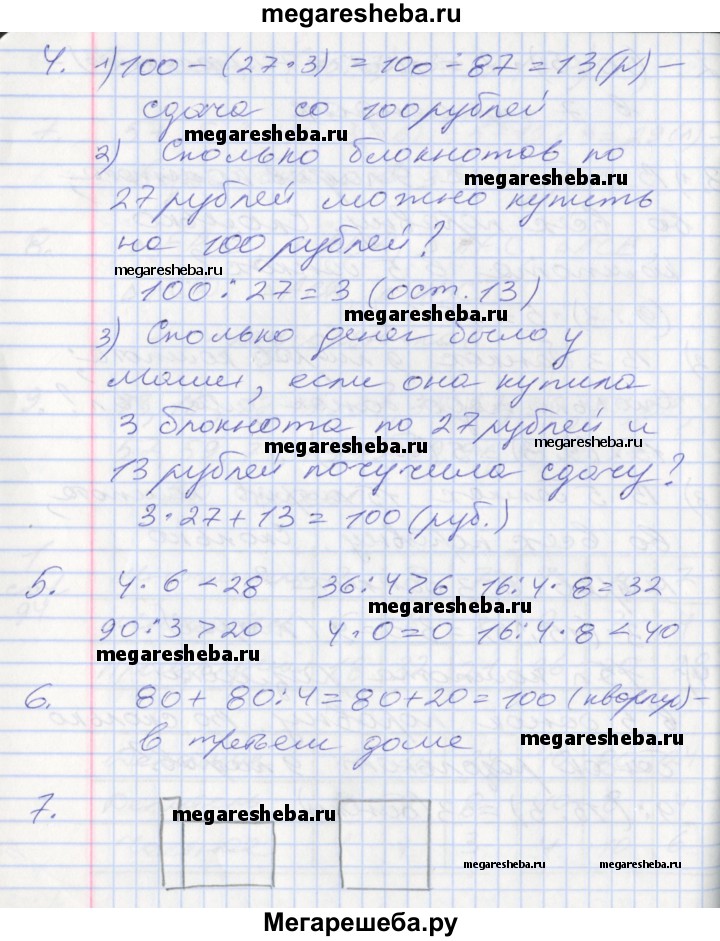 megaresheba.ru
4. 1) 100 - (27 · 3) = 100 - 87 = 13 (р) -
сдача со 100 рублей
megaresheba.ru
2) Сколько блокнотов по
megaresheba.ru
27 рублей можно купить
на 100 рублей?
megaresheba.ru
100 : 27 = 3 (ост. 13)
megaresheba.ru
3) Сколько денег было у
Маши, если она купила
3 блокнота по 27 рублей и
megaresheba.ru
megaresheba.ru
13 рублей получила сдачу?
3 · 27 + 13 = 100 (руб.)
5. 4 · 6 < 28 36 : 4 > 6 16 : 4 · 8 = 32
megaresheba.ru
90 : 3 > 20 4 · 0 = 0 16 : 4 · 8 < 40
megaresheba.ru
6. 80 + 80 : 4 = 80 + 20 = 100 (квартир) -
в третьем доме
megaresheba.ru
7.
megaresheba.ru
megaresheba.ru megaresheba.ru
Мегарешеба.ру